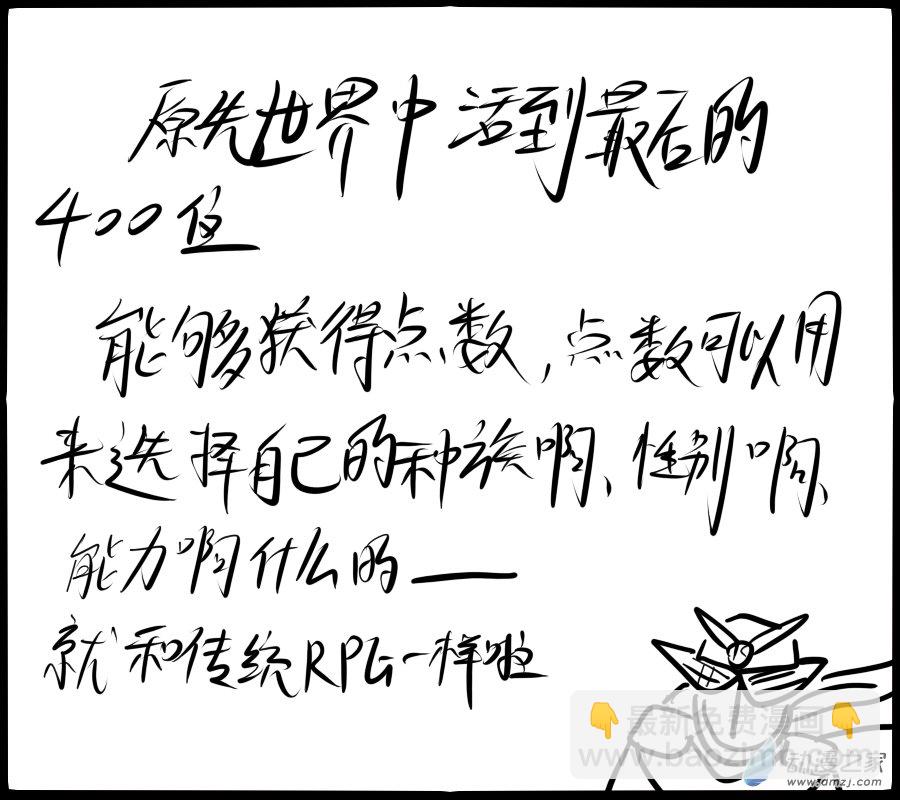 原先世界中活到最后的
400位
能够获得点数,点数可以用
来选择自己的种族啊、性别啊、
能力啊什么的——
就和传统RPG一样啦
👇最新免费漫画👇
www.baozimh.com
动漫之家
www.dmzj.com